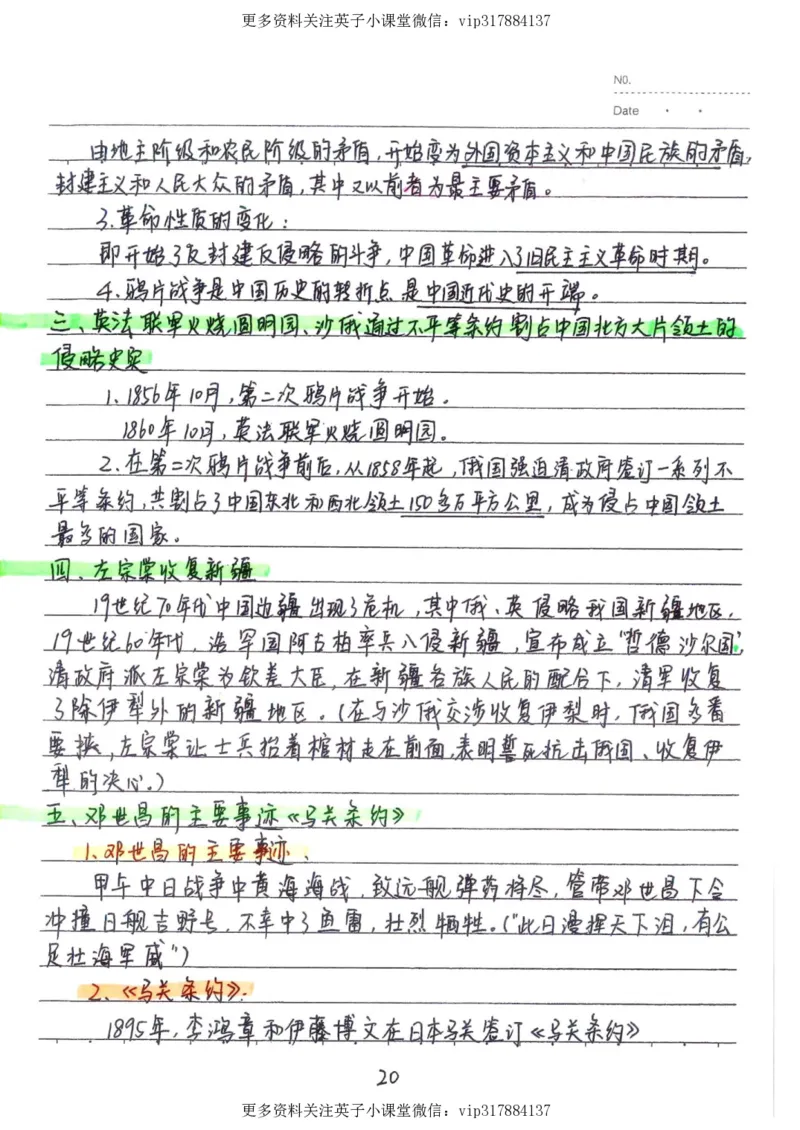 更多资料关注英子小课堂微信：vip317884137
NO.
Date
由地主阶级和农民阶级的矛盾，开始变为外国资本主义和中国民族的矛盾，
封建主义和人民大众的矛盾，其中又以前者为最主要矛盾。
3.革命性质的变化：
即开始了反封建反侵略的斗争，中国革命进入了旧民主主义革命时期。
4.鸦片战争是中国历史的转折点是中国近代史的开端。
三、英法联军火烧圆明园、沙俄通过不平等条约割占中国北方大片领土的
侵略史实
1.1856年10月，第二次鸦片战争开始。
1860年10月，英法联军火烧圆明园。
2.在第二次鸦片战争前后，从1858年起，俄国强迫清政府签订一系列不
平等条约，共割占了中国东北和西北领土150多万平方公里，成为侵占中国领土
最多的国家。
四、左宗棠收复新疆
19世纪70年代中国边疆出现了危机，其中俄、英侵略我国新疆地区，
19世纪60年代，浩罕国阿古柏率兵入侵新疆，宣布成立"哲德沙尔国"，
清政府派左宗棠为钦差大臣，在新疆各族人民的配合下，清军收复
了除伊犁外的新疆地区。(在与沙俄交涉收复伊犁时，俄国多番
要挟，左宗棠让士兵抬着棺材走在前面，表明誓死抗击俄国、收复伊
犁的决心。)
五、邓世昌的主要事迹《马关条约》
1.邓世昌的主要事迹、
甲午中日战争中黄海海战，致远舰弹药将尽，管带邓世昌下令
冲撞日舰吉野号，不幸中了鱼雷，壮烈牺牲。("此日漫挥天下泪，有公
足壮海军威")
2、《马关条约》.
1895年，李鸿章和伊藤博文在日本马关签订《马关条约》
20
更多资料关注英子小课堂微信：vip317884137